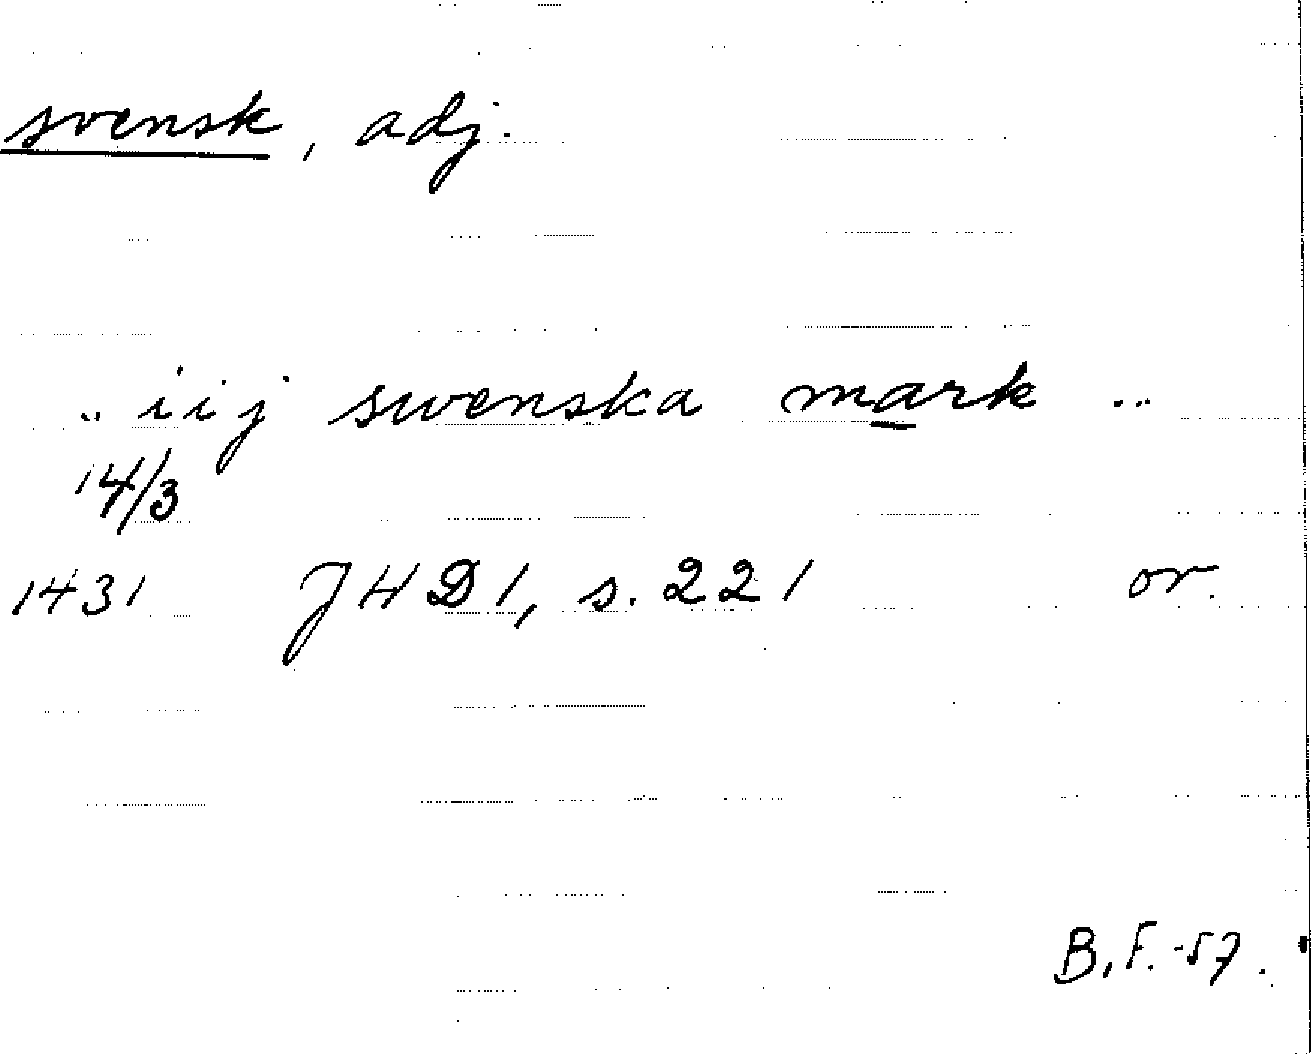 svensk, adj.
.. iij swenska mark ..
14/3
1431 JHD 1, s. 221 or.
B.F. -57.